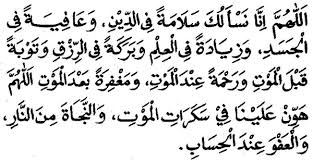 اَللّٰهُمَّ اِنَّا نَسْأَلُكَ سَلَامَةً فِى الدِّيْنِ، وَعَافِيَةً فِى
الْجَسَدِ، وَزِيَادَةً فِى الْعِلْمِ وَبَرَكَةً فِى الرِّزْقِ وَتَوْبَةً
قَبْلَ الْمَوْتِ وَرَحْمَةً عِنْدَ الْمَوْتِ، وَمَغْفِرَةً بَعْدَ الْمَوْتِ اَللّٰهُمَّ
هَوِّنْ عَلَيْنَا فِيْ سَكَرَاتِ الْمَوْتِ، وَالنَّجَاةَ مِنَ النَّارِ،
وَالْعَفْوَ عِنْدَ الْحِسَابِ.